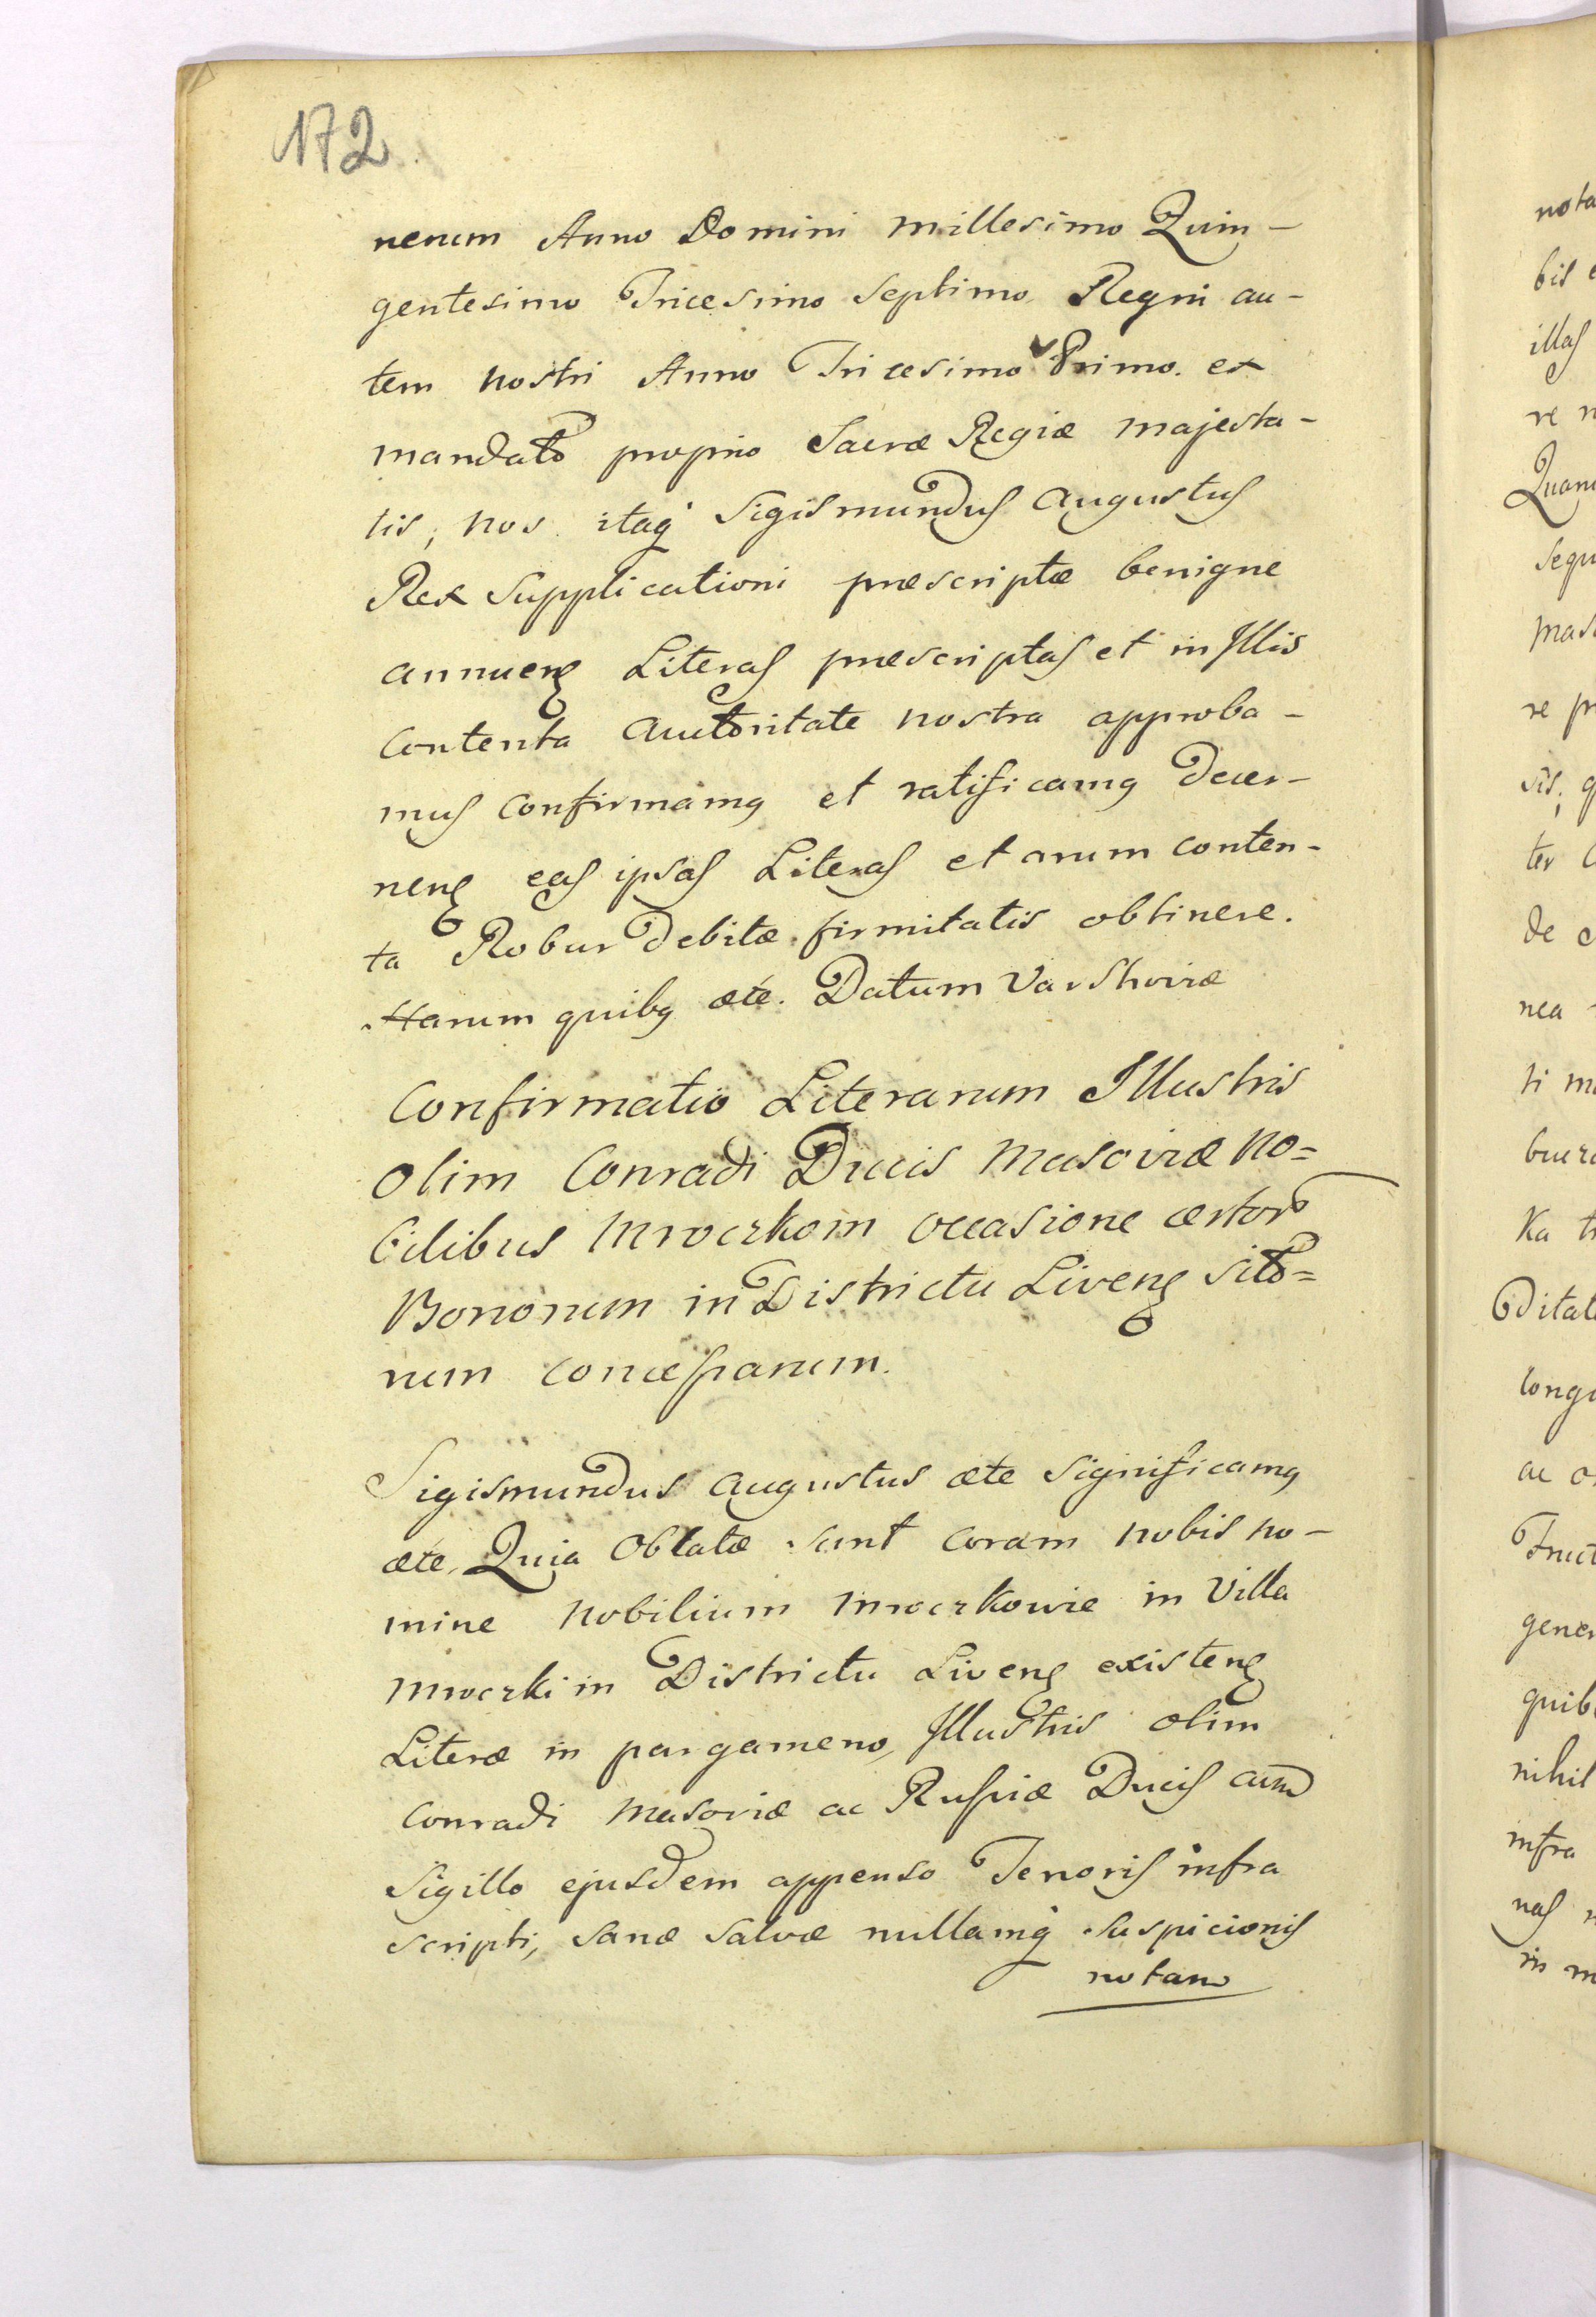 172
nerum Anno Domini Millesimo Quin-
gentesimo Tricesimo Septimo Regni au-
tem nostri Anno Tricesimo Primo. ex
mandato proprio Sacræ Regiæ Majesta-
tis, Nos itaq Sigismundus Augustus
Rex Supplicationi præscriptæ benigne
annuens Literas præscriptas et in Illis
Contenta Autoritate Nostra approba-
mus Confirmamq et ratificamq Decer-
nens eas ipsas Literas et arum conten-
ta Robur Debitæ firmitatis obtinere.
Harum quibq ætc. Datum Varshoviæ
Confirmatio Literarum Illustris
olim Conradi Ducis Masoviæ No=
bilibus Mroczkom occasione certor
Bonorum in Districtu Livens sito=
rum concessarum.
Sigismundus Augustus ætc Significamq
ætc, Quia Oblatæ sunt coram nobis no-
mine Nobilium Mroczkowie in Villa
Mroczki in Districtu Livens existens
Literæ in pargameno, Illustris olim
Conradi Masoviæ ac Russiæ Ducis cum
Sigillo ejusdem appenso Tenoris infra
scripti, sanæ salvæ nullamq suspicionis
notam
nota
bis
illas
re
sequ
re
sis, q
ter
de
nea
ti
Ka
longi
ac
gener
quib
nihil
infra
nas
in